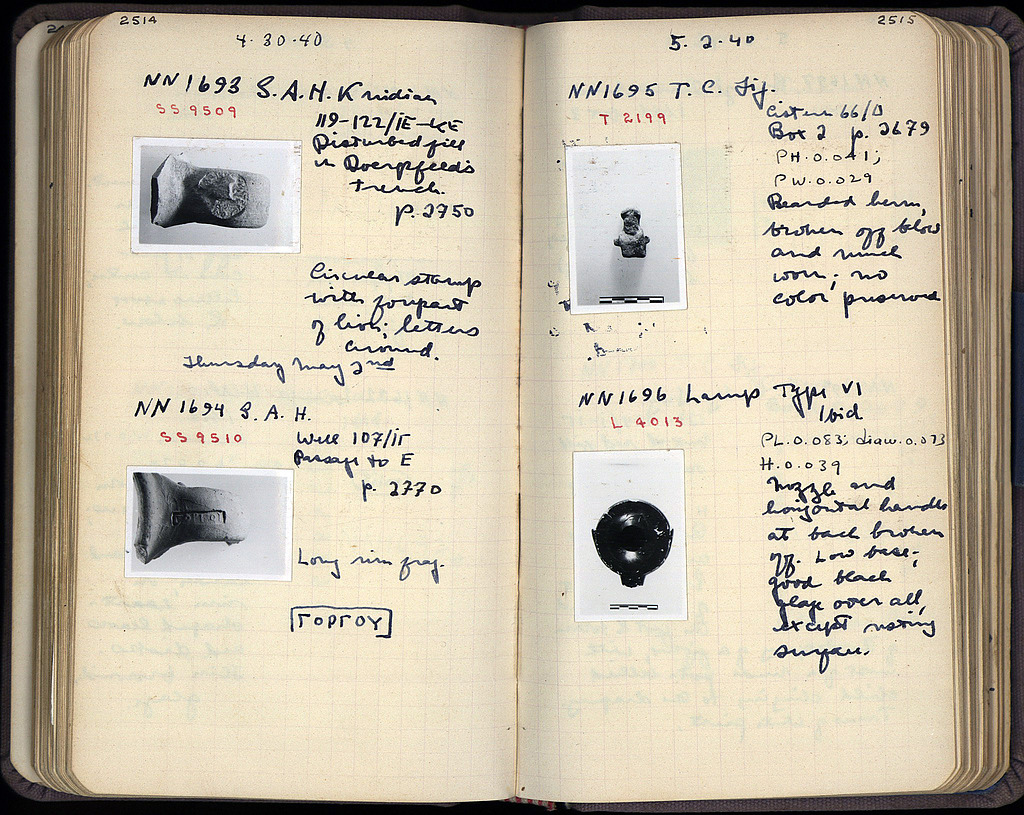 2514
4·30·40
NN1693 S.A.H. Knidian
SS 9509
119-122/ΙΕ-ΚΕ
Disturbed fill
in Doerpfeld's
trench.
p. 2750
Circular stamp
with forepart
of lion; letters
around.
Thursday May 2nd
NN 1694 S. A. H.
SS 9510
Well 107/ΙΓ
Passage to E
p. 2770
Long rim frag.
ΓΟΡΓΟΥ
2515
5.2.40
NN1695 T. C. Fig.
T 2199
Cistern 66/Δ
Box 2 p. 2679
PH.0.041;
PW.0.029
Bearded herm,
broken off below
and much
worn; no
color preserved
NN1696 Lamp Type VI
L 4013
Ibid
PL.0.083; diam.0.073
H.0.039
Nozzle and
horizontal handle
at back broken
off. Low base;
good black
glaze over all,
except resting
surface.